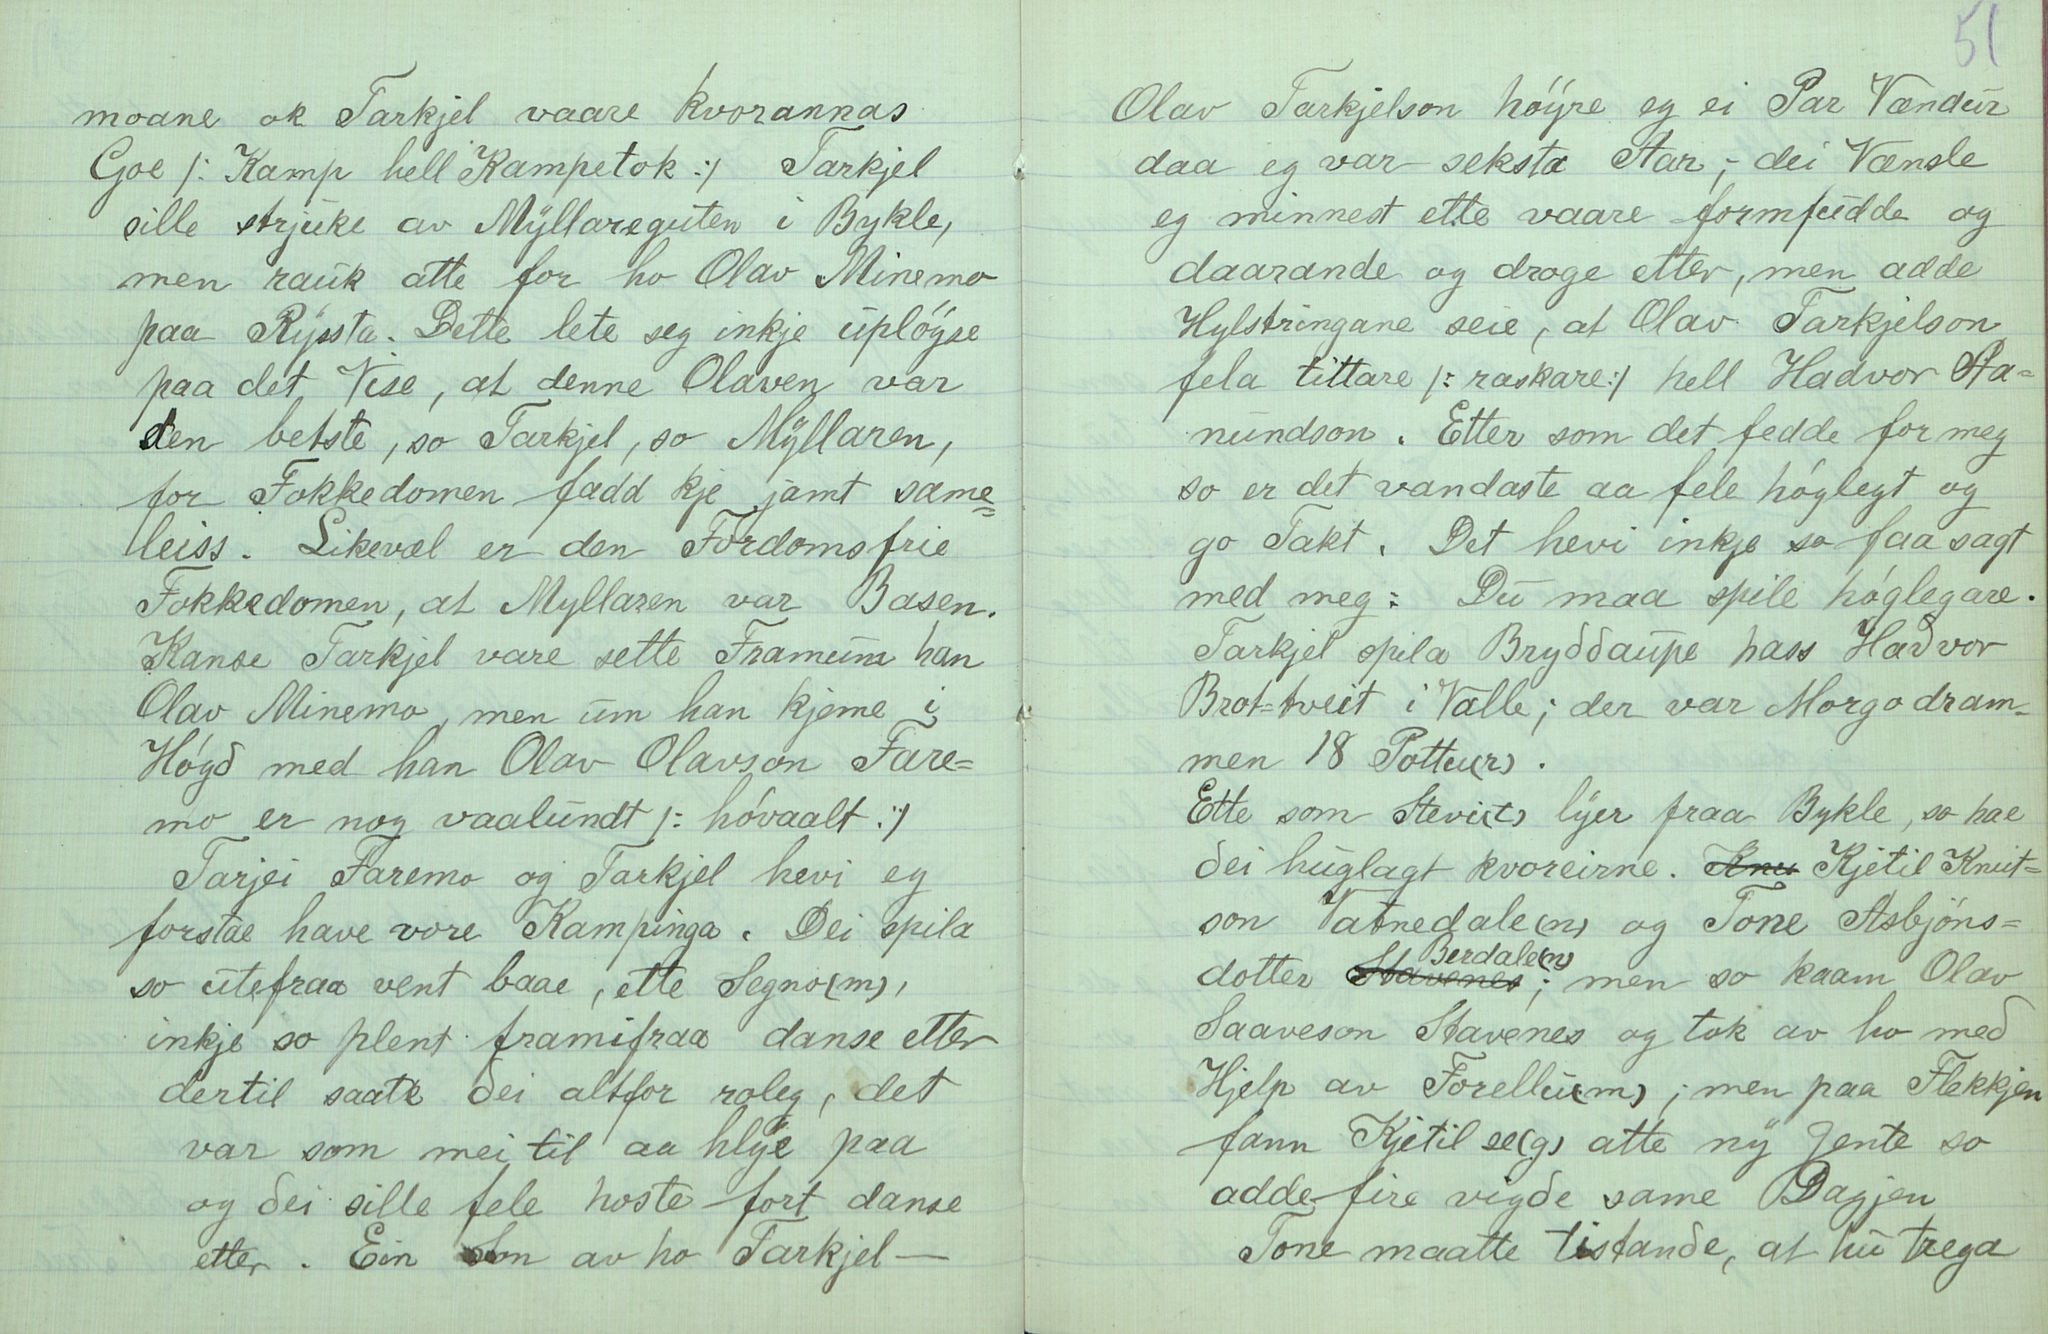 moane ok Tarkjel vaare kvorannas
Goe /: Kamp hell Kampetok :/ Tarkjel
sille strjuke av Myllareguten i Bykle,
men rauk atte for ho Olav Minemo
paa Ryssta. Dette lete seg inkje uplöyse
paa det Vise, at denne Olaven var
den betste, so Tarkjel, so Myllaren,
for Fokkedomen fadd kje jamt same=
leiss. Likevæl er den Fordomsfrie
Fokkedomen, at Myllaren var Basen.
Kanse Tarkjel vare sette Framum han
Olav Minemo, men um han kjeme i
Högd med han Olav Olavson Fare=
mo er nog vaalundt /: hövaalt :/
Tarjei Faremo og Tarkjel hevi eg
forstæ have vore Kampinga. Dei spila
so utefraa vent baae, ette Segno(m),
inkje so plent framifraa danse etter
dertil saate dei altfor roleg, det
var som mei til aa hlye paa
og dei sille fele hoste fort danse
etter. Ein Son av ho Tarkjel —
51
Olav Tarkjelson höyre eg ei Par Vændur
daa eg var seksta Aar, – dei Vænsle
eg minnest ette vaare formfudde og
daarande og droge etter, men adde
Hylstringane seie, at Olav Tarkjelson
fela tittare /: raskare :/ hell Hadvor Aa=
nundson. Etter som det fedde for meg
so er det vandaste aa fele höglegt og
go Takt. Det hevi inkje so faa sagt
med meg: Du maa spile höglegare.
Tarkjel spila Bryddaupe hass Hadvor
Brot=tveit i Valle; der var Morgodram=
men 18 Pottu(r).
Ette som Stevi(t) lyer fraa Bykle, so hae
dei huglagt kvoreirne. Knu Kjetil Knut=
son Vatnedale(n) og Tone Asbjöns=
dotter Stavenes Berdale(n); men so kaam Olav
Saaveson Stavenes og tok av ho med
Hjelp av Forellu(m); men paa Flekkjen
fann Kjetil se(g) atte ny Jente so
adde fire vigde same Dagjen
Tone maatte tistande, at hu trega